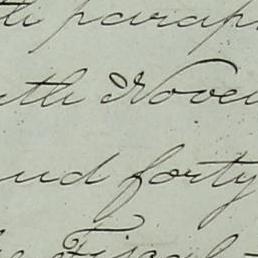 th parap
th Nove
nd forty
Fiscal